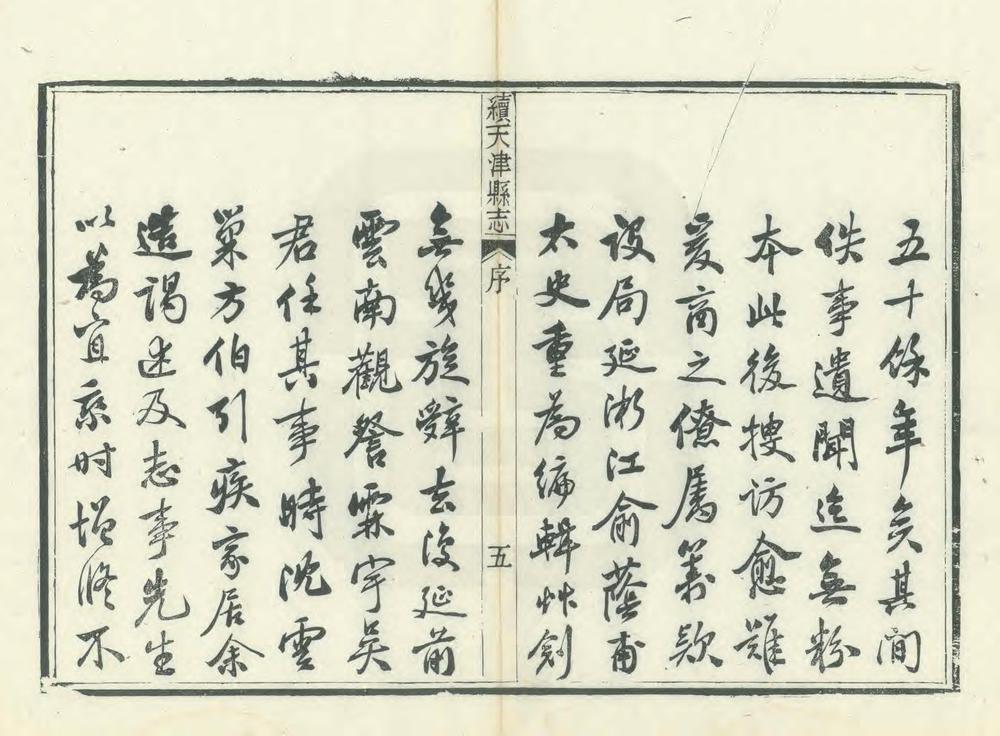 五十餘年矣其間
佚事遺聞迄無粉
本此後搜访愈難
爰商之僚属筹欵
设局延浙江俞蔭甫
太史重為編輯艸創
續天津縣志
序
五
無幾旋辭去復延前
雲南觀詧霖宇吴
君任其事時沈雲
巢方伯引疾家居余
造謁述及志事先生
以為宜亟时增脩不